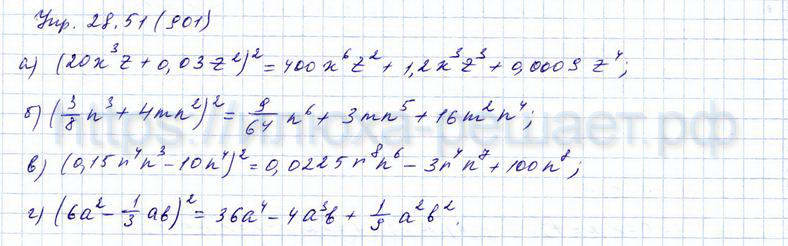 Упр. 28.51 (901)
а) (20x³z + 0,03z²)² = 400x⁶z² + 1,2x³z³ + 0,0009z⁴;
б) (3/8 n³ + 4mn²)² = 9/64 n⁶ + 3mn⁵ + 16m²n⁴;
в) (0,15r⁴n³ - 10n⁴)² = 0,0225r⁸n⁶ - 3r⁴n⁷ + 100n⁸;
г) (6a² - 1/3 ab)² = 36a⁴ - 4a³b + 1/9 a²b².